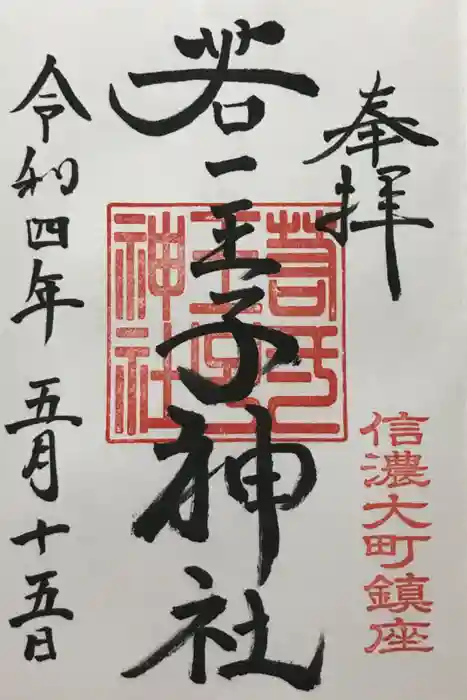 奉拝
信濃大町鎮座
若一王子神社
若一王子神社
令和四年五月十五日